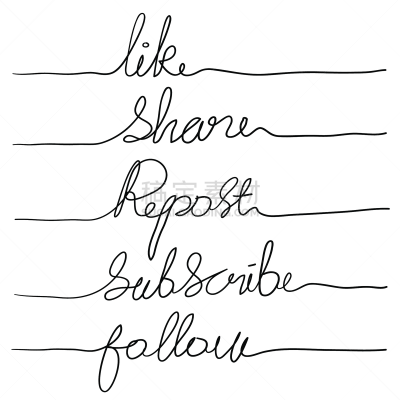 like
share
Repost
搞定素材
subscribe
follow